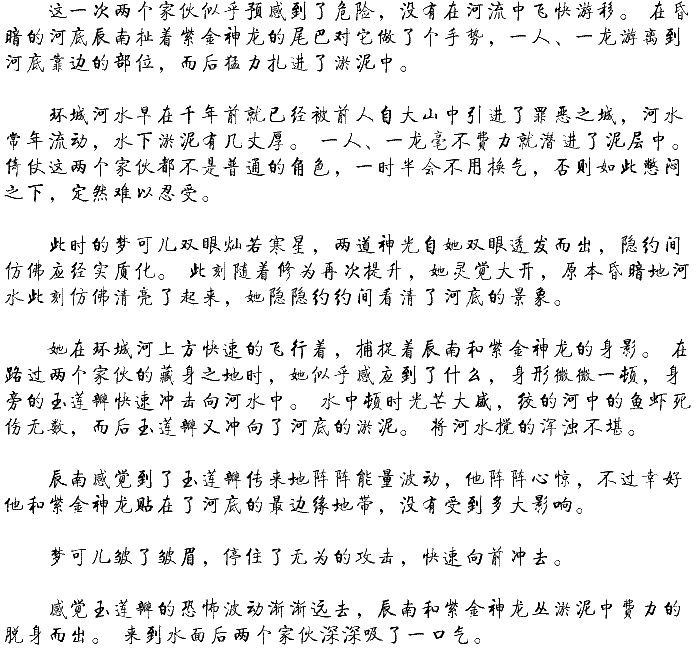 这一次两个家伙似乎预感到了危险，没有在河流中飞快游移。 在昏
暗的河底辰南扯着紫金神龙的尾巴对它做了个手势，一人、一龙游离到
河底靠边的部位，而后猛力扎进了淤泥中。
环城河水早在千年前就已经被前人自大山中引进了罪恶之城，河水
常年流动，水下淤泥有几丈厚。 一人、一龙毫不费力就潜进了泥层中。
倚仗这两个家伙都不是普通的角色，一时半会不用换气，否则如此憋闷
之下，定然难以忍受。
此时的梦可儿双眼灿若寒星，两道神光自她双眼透发而出，隐约间
仿佛应经实质化。 此刻随着修为再次提升，她灵觉大开，原本昏暗地河
水此刻仿佛清亮了起来，她隐隐约约间看清了河底的景象。
她在环城河上方快速的飞行着，捕捉着辰南和紫金神龙的身影。 在
路过两个家伙的藏身之地时，她似乎感应到了什么，身形微微一顿，身
旁的玉莲瓣快速冲击向河水中。 水中顿时光芒大盛，绞的河中的鱼虾死
伤无数，而后玉莲瓣又冲向了河底的淤泥。 将河水搅的浑浊不堪。
辰南感觉到了玉莲瓣传来地阵阵能量波动，他阵阵心惊，不过幸好
他和紫金神龙贴在了河底的最边缘地带，没有受到多大影响。
梦可儿皱了皱眉，停住了无为的攻击，快速向前冲去。
感觉玉莲瓣的恐怖波动渐渐远去，辰南和紫金神龙丛淤泥中费力的
脱身而出。 来到水面后两个家伙深深吸了一口气。